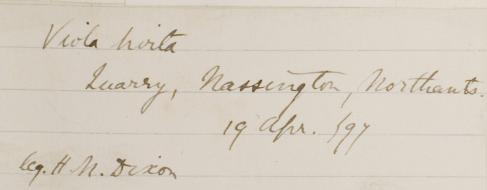 Viola hirta
Quarry, Nassington, Northants.
19 Apr. /97
leg. H. N. Dixon